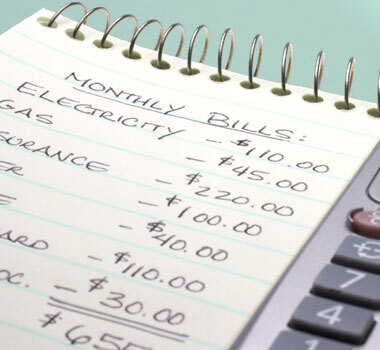 MONTHLY BILLS:
ELECTRICITY – $110.00
GAS – $45.00
SURANCE – $220.00
ER – $100.00
E – $40.00
ARD – $110.00
OC. – $30.00
$655
7
4
1